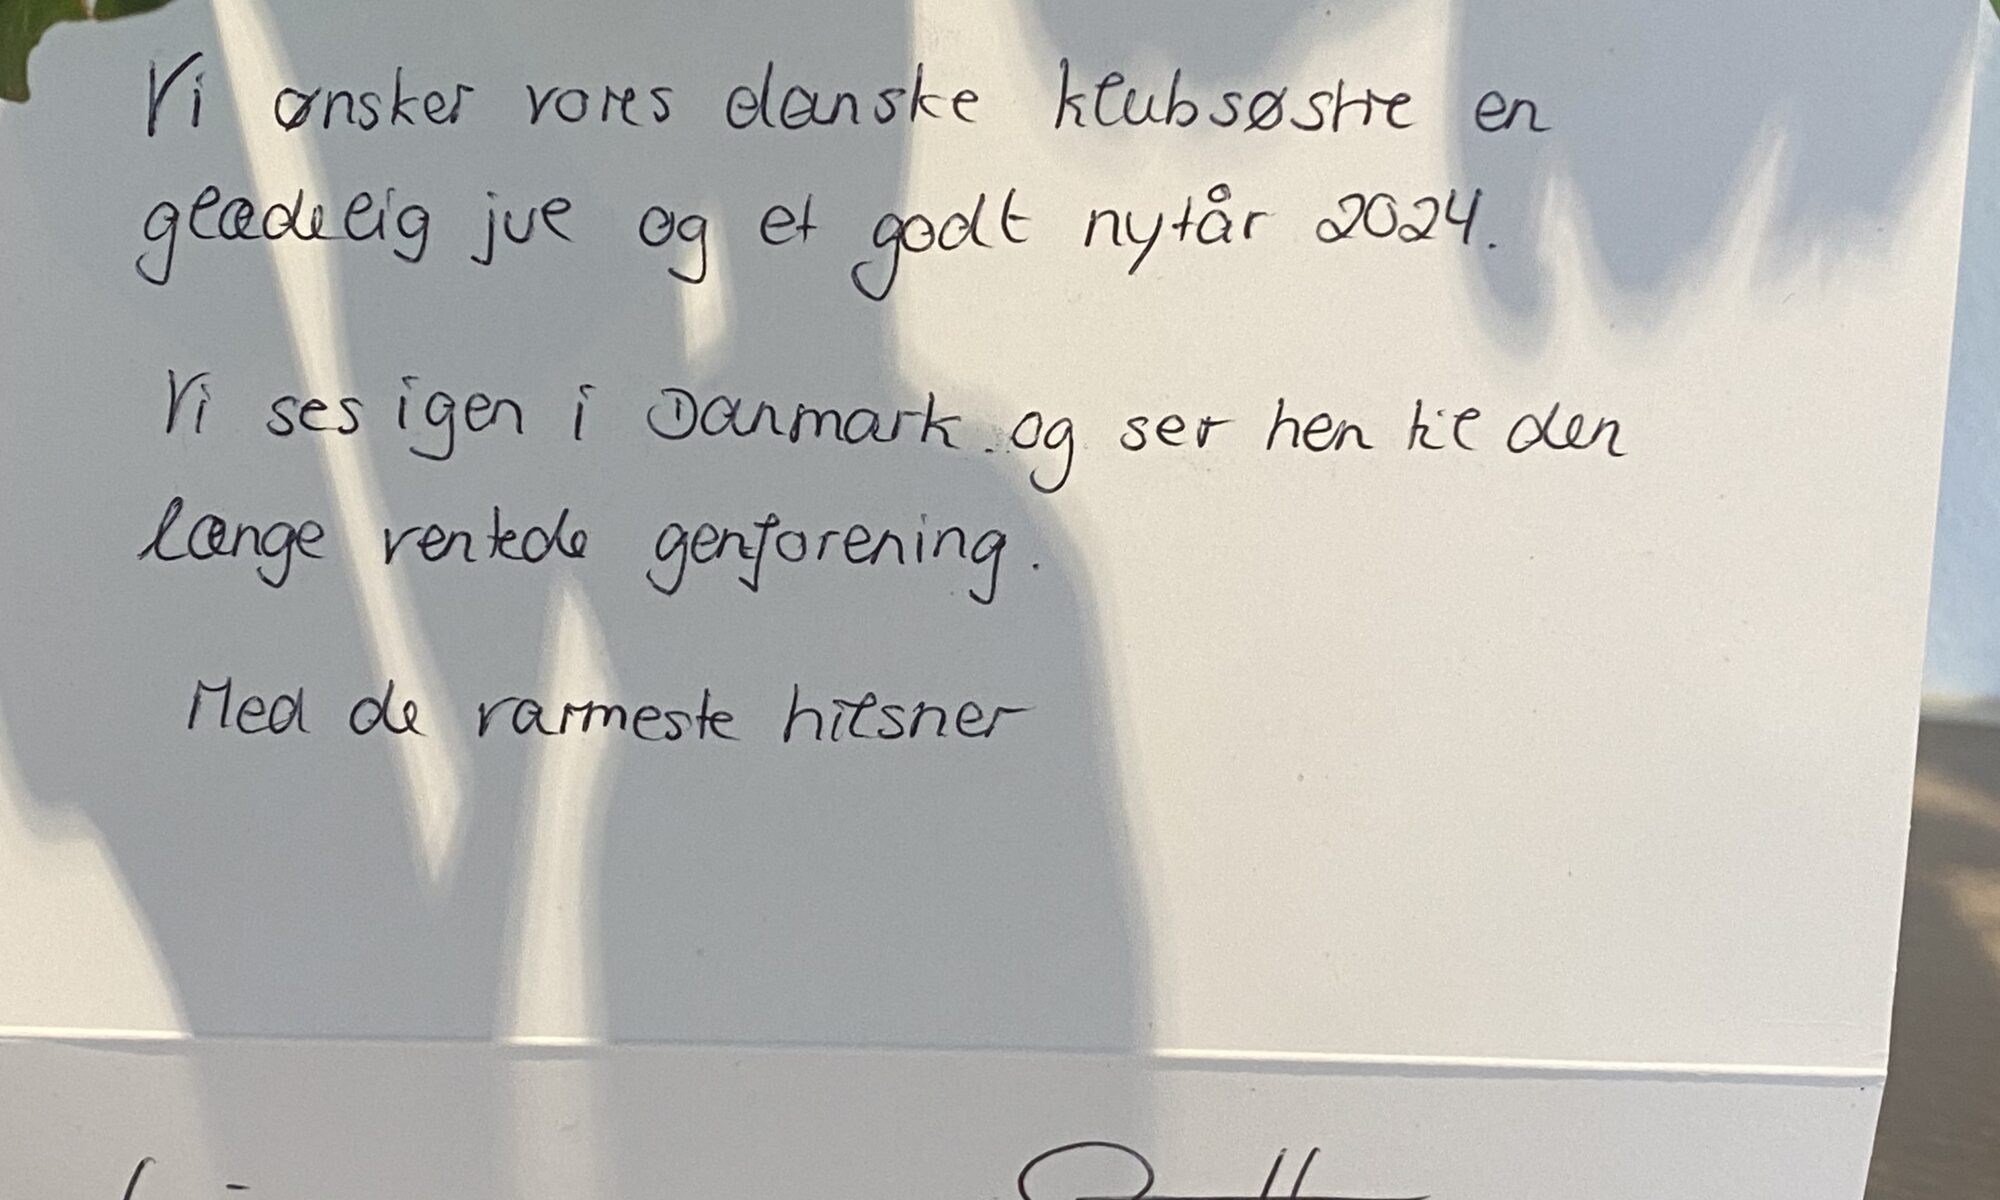 Vi ønsker vores danske klubsøstre en
glædelig jul og et godt nytår 2024.
Vi ses igen i Danmark og ser hen til den
længe ventede genforening.
Med de varmeste hilsner